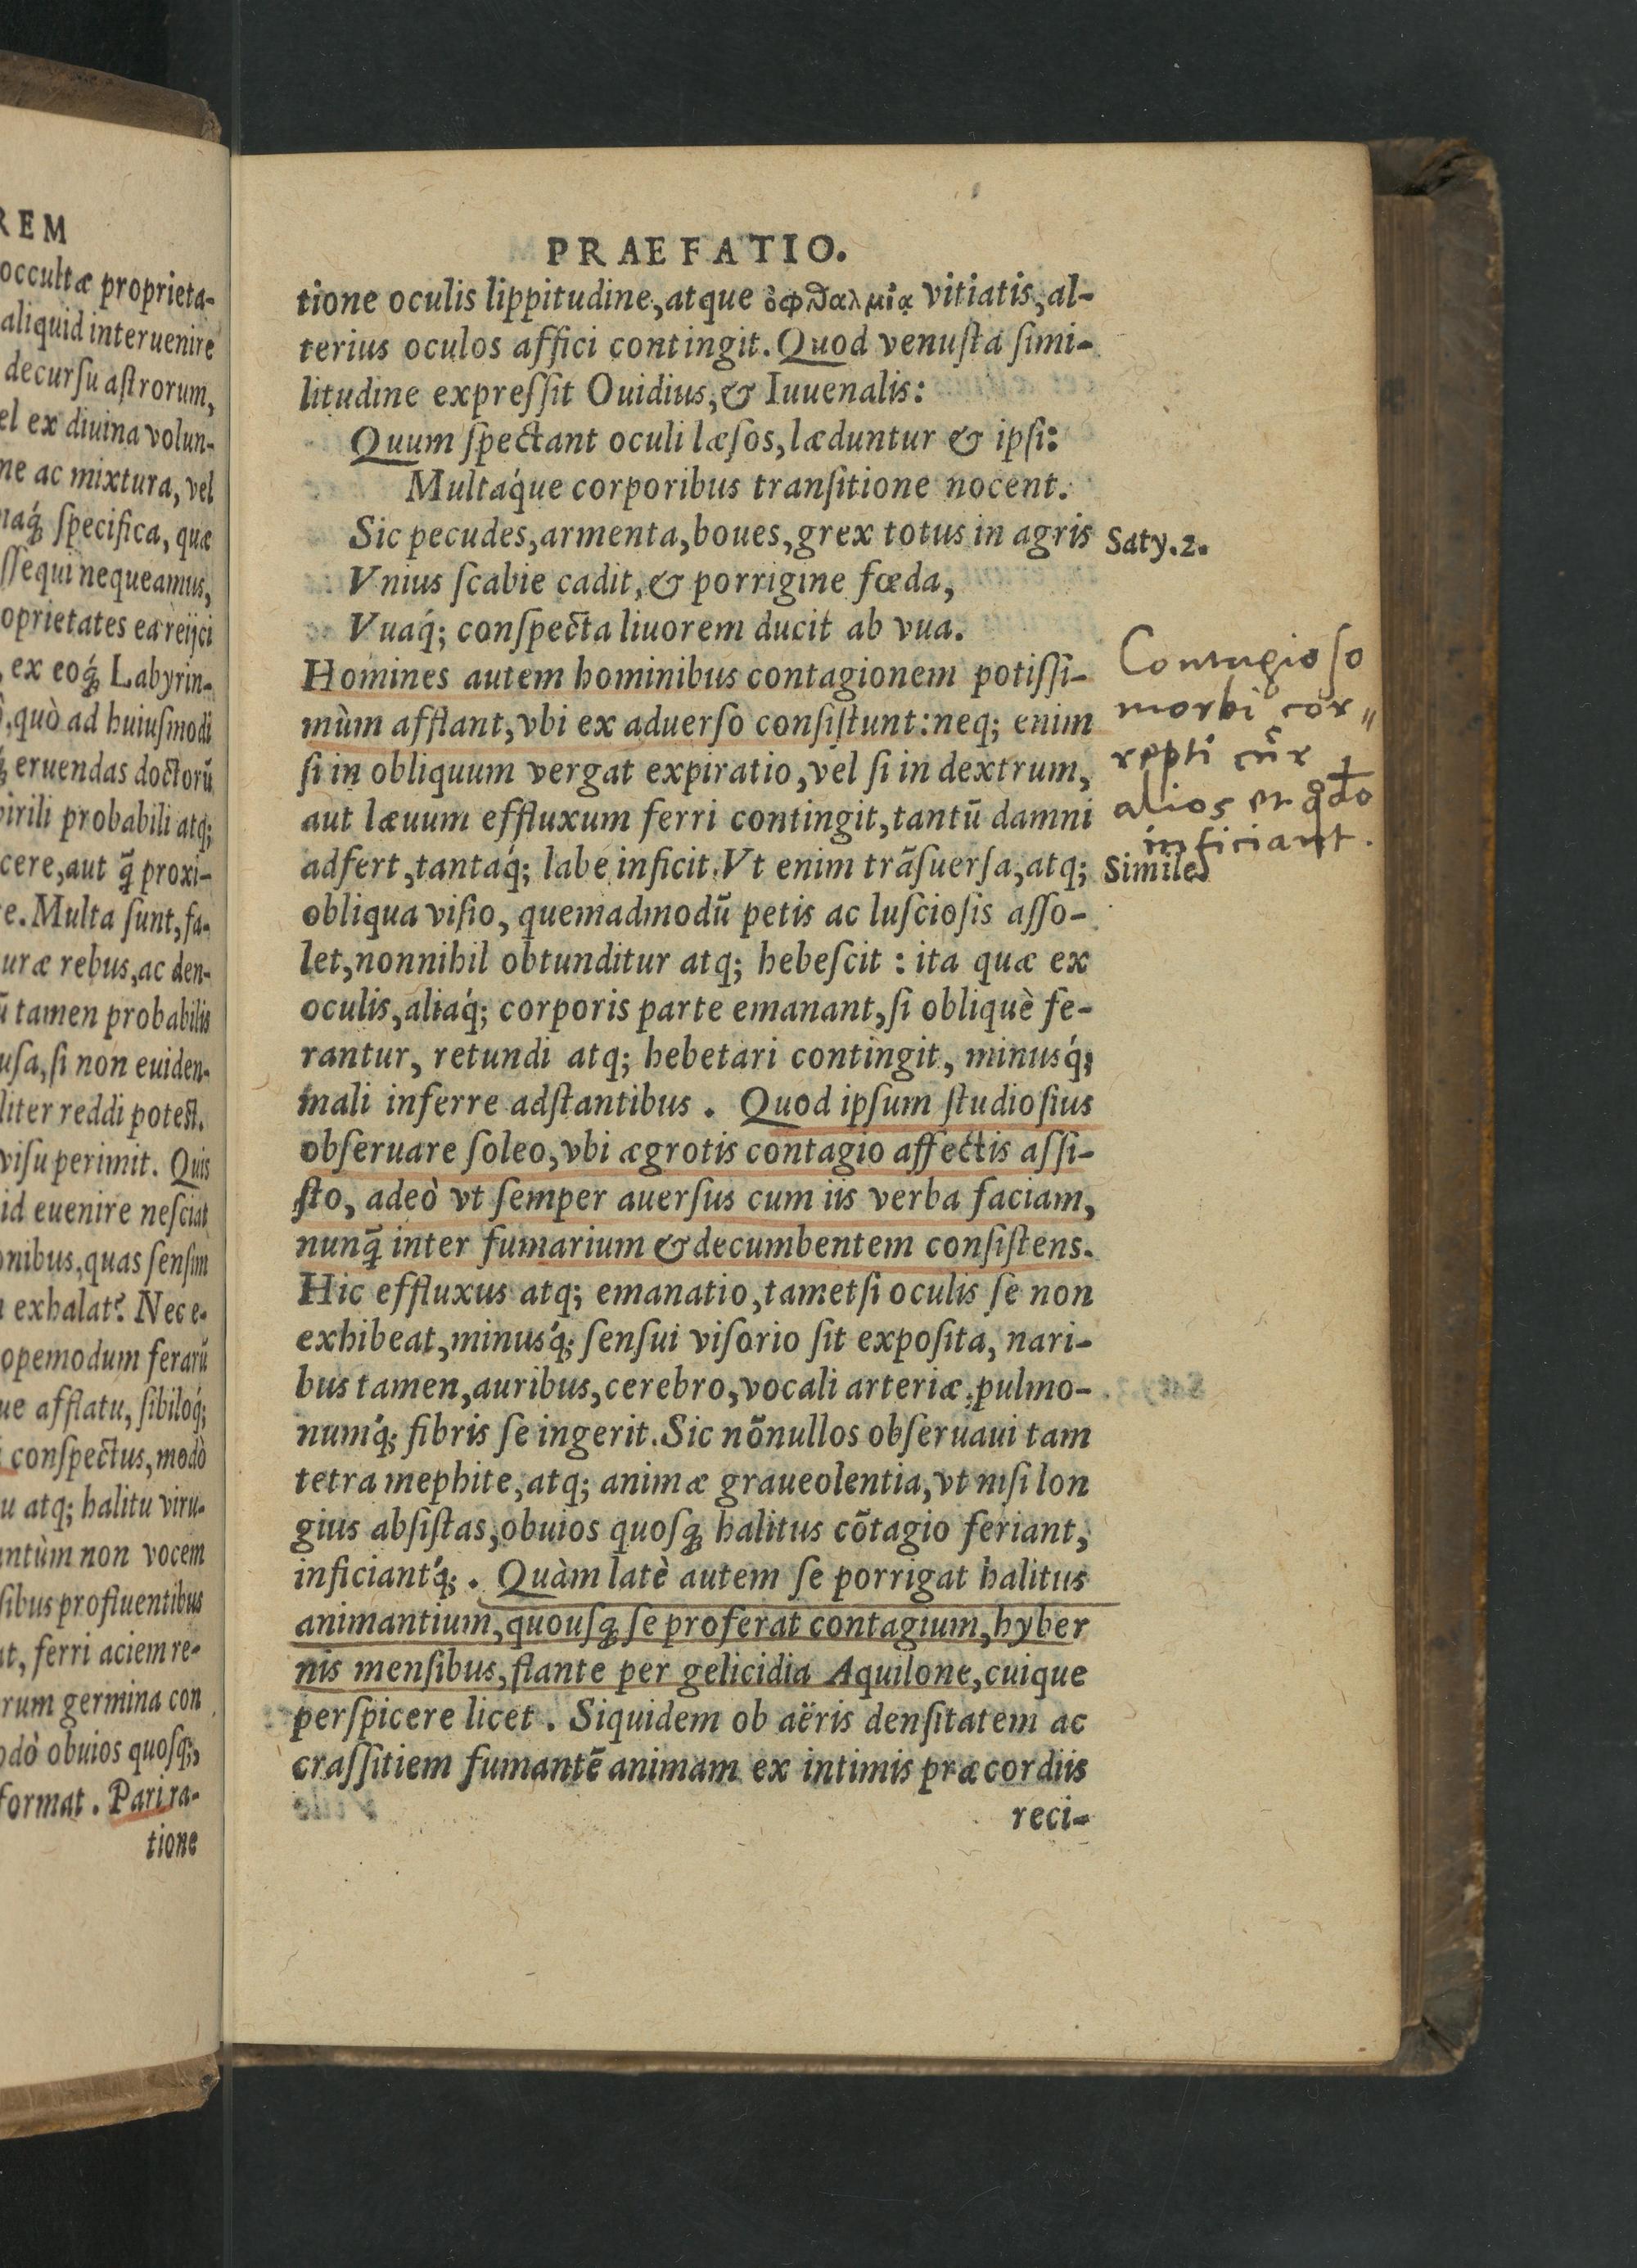 REM
occultæ proprieta-
aliquid interuenire
decursu astrorum,
el ex diuina volun-
ne ac mixtura, vel
specifica, quæ
ssequi nequeamus,
oprietates ea reijci
ex eoq́; Labyrin-
quò ad huiusmodi
eruendas doctorũ
irili probabili atq;
cere, aut q̃ proxi-
e. Multa sunt, fa-
uræ rebus, ac den-
tamen probabilis
usa, si non euiden-
liter reddi potest.
visu perimit. Quis
id euenire nesciat
onibus, quas sensim
exhalat? Nec e-
opemodum ferarũ
ue afflatu, sibiloq́;
conspectus, modò
u atq; halitu viru-
antùm non vocem
sibus profluentibus
at, ferri aciem re-
rum germina con
odò obuios quosq;,
format. Pari ra-
tione
PRAEFATIO.
tione oculis lippitudine, atque ὀφθαλμίᾳ vitiatis, al-
terius oculos affici contingit. Quod venusta simi-
litudine expressit Ouidius, & Iuuenalis:
Quum spectant oculi læsos, læduntur & ipsi:
Multáque corporibus transitione nocent.
Sic pecudes, armenta, boues, grex totus in agris
Saty. 2.
Vnius scabie cadit, & porrigine fœda,
Vuaq́; conspecta liuorem ducit ab vua.
Homines autem hominibus contagionem potissi-
mùm afflant, vbi ex aduerso consistunt: neq; enim
si in obliquum vergat expiratio, vel si in dextrum,
aut læuum effluxum ferri contingit, tantũ damni
adfert, tantaq́; labe inficit. Vt enim trãsuersa, atq;
Contagioso
morbo cor"
repti cũr
alios et qdo
inficiant.
Simile
obliqua visio, quemadmodũ petis ac lusciosis asso-
let, nonnihil obtunditur atq; hebescit: ita quæ ex
oculis, aliaq́; corporis parte emanant, si obliquè fe-
rantur, retundi atq; hebetari contingit, minusq́;
mali inferre adstantibus. Quod ipsum studiosius
obseruare soleo, vbi ægrotis contagio affectis assi-
sto, adeò vt semper auersus cum iis verba faciam,
nunq̃ inter fumarium & decumbentem consistens.
Hic effluxus atq; emanatio, tametsi oculis se non
exhibeat, minusq́; sensui visorio sit exposita, nari-
bus tamen, auribus, cerebro, vocali arteriæ, pulmo-
numq́; fibris se ingerit. Sic nõnullos obseruaui tam
tetra mephite, atq; animæ graueolentia, vt nisi lon
gius absistas, obuios quosq; halitus cõtagio feriant,
inficiantq́;. Quàm latè autem se porrigat halitus
animantium, quousq; se proferat contagium, hyber
nis mensibus, flante per gelicidia Aquilone, cuique
perspicere licet. Siquidem ob aëris densitatem ac
crassitiem fumantẽ animam ex intimis præcordiis
reci-